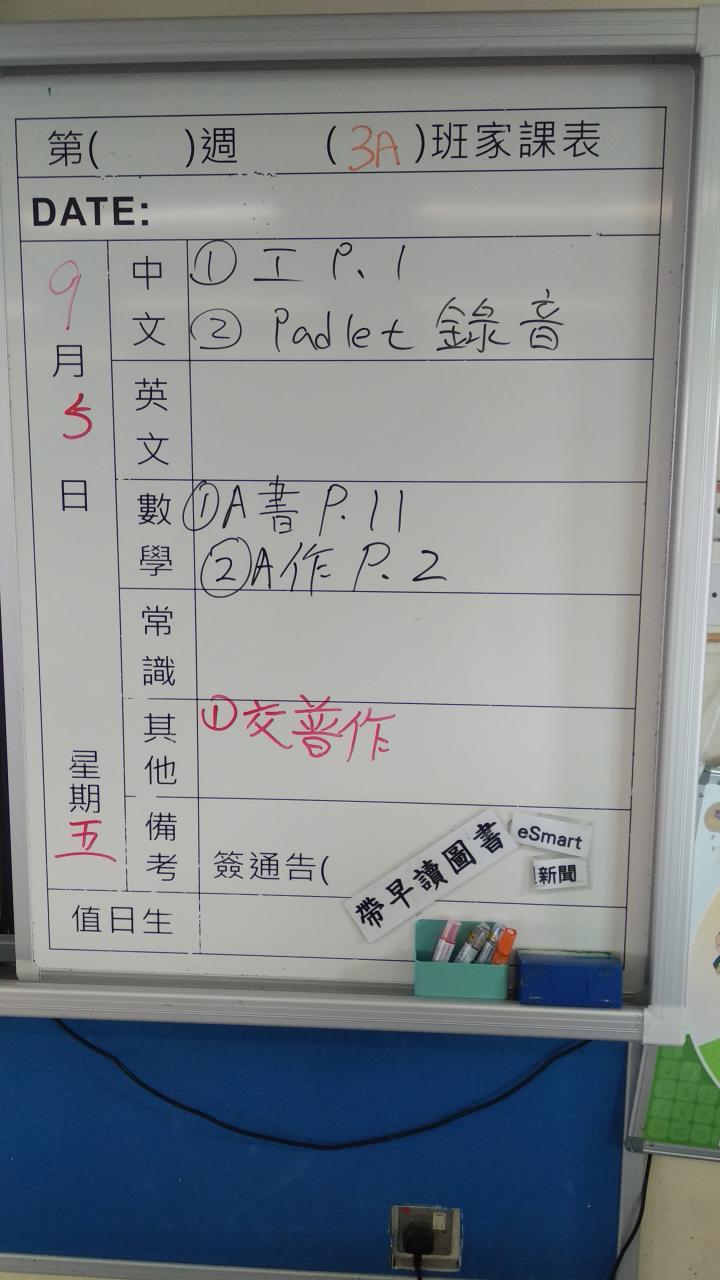 第(　　)週　　(3A)班家課表
DATE:
9月5日
星期五
中文
① 工 P. 1
② Padlet 錄音
英文
數學
①A書 P.11
②A作 P.2
常識
其他
①交普作
備考
簽通告(
帶早讀圖書
eSmart
新聞
值日生